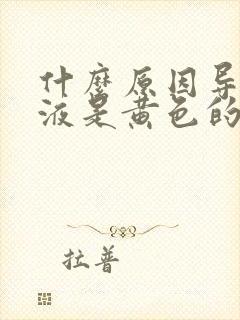 什麽原因导
液是黄色的
拉普